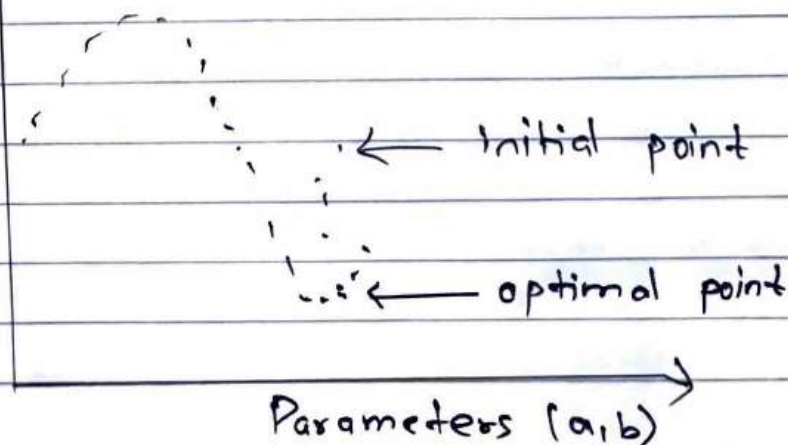 initial point
optimal point
Parameters (a,b)